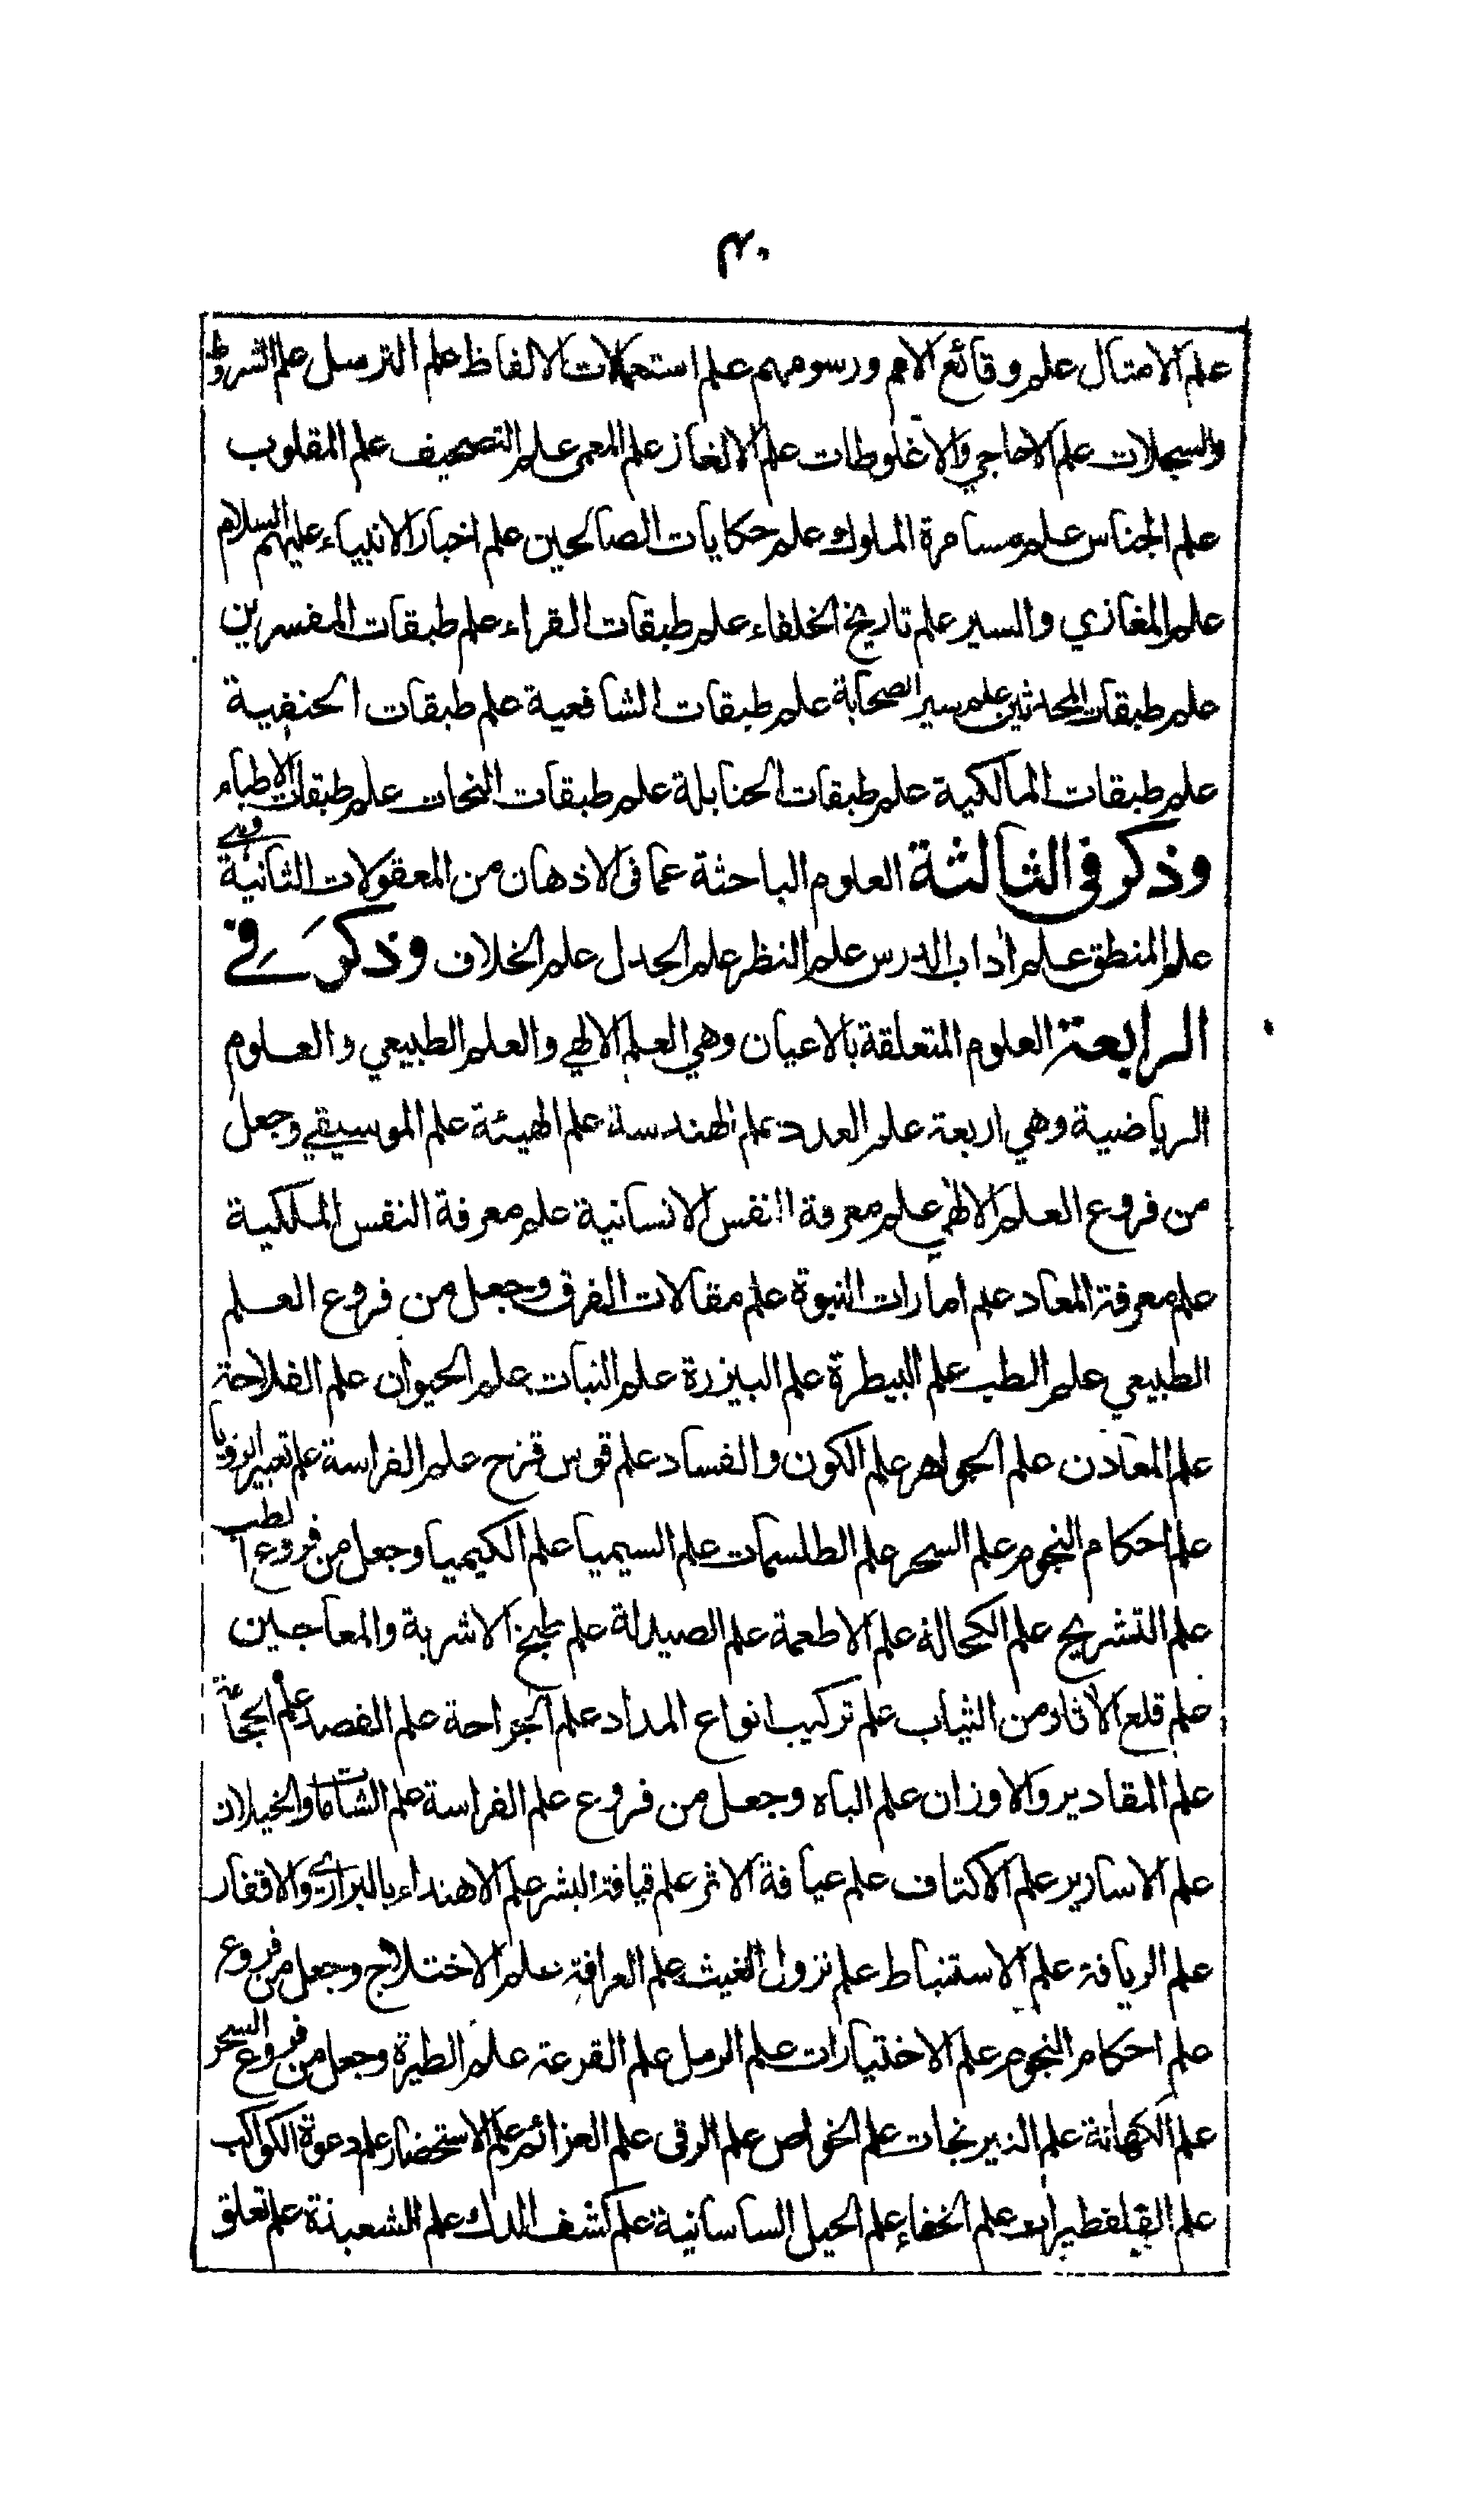 ٣٠
علم الامثال علم وقائع الامم ورسومهم علم استعمالات الالفاظ علم الترسل علم الشروط
والسجلات علم الاحاجي والاغلوطات علم الالغاز علم المعمى علم التصحيف علم المقلوب
علم الجناس علم مسامرة الملوك علم حكايات الصالحين علم اخبار الانبياء عليهم السلام
علم المغازي والسير علم تاريخ الخلفاء علم طبقات القراء علم طبقات المفسرين
علم طبقات المحدثين علم سير الصحابة علم طبقات الشافعية علم طبقات الحنفية
علم طبقات المالكية علم طبقات الحنابلة علم طبقات النحات علم طبقات الاطباء
وذكر في الثالثة العلوم الباحثة عما في الاذهان من المعقولات الثانية وهي
علم المنطق علم اداب الدرس علم النظر علم الجدل علم الخلاف وذكر في
الرابعة العلوم المتعلقة بالاعيان وهي العلم الالهي والعلم الطبيعي والعلوم
الرياضية وهي اربعة علم العدد علم الهندسة علم الهيئة علم الموسيقي وجعل
من فروع العلم الالهي علم معرفة النفس الانسانية علم معرفة النفس الملكية
علم معرفة المعاد علم امارات النبوة علم مقالات الفرق وجعل من فروع العلم
الطبيعي علم الطب علم البيطرة علم البيزرة علم النبات علم الحيوان علم الفلاحة
علم المعادن علم الجواهر علم الكون والفساد علم قوس قزح علم الفراسة علم تعبير الرويا
علم احكام النجوم علم السحر علم الطلسمات علم السيميا علم الكيميا وجعل من فروع الطب
علم التشريح علم الكحالة علم الاطعمة علم الصيدلة علم طبخ الاشربة والمعاجين
علم قلع الاثار من الثياب علم تركيب انواع المداد علم الجراحة علم الفصد علم الحجامة
علم المقادير والاوزان علم الباه وجعل من فروع علم الفراسة علم الشامات والخيلان
علم الاسارير علم الاكتاف علم عيافة الاثر علم قيافة البشر علم الاهتداء بالبراري والاقفار
علم الريافة علم الاستنباط علم نزول الغيث علم العرافة علم الاختلاج وجعل من فروع
علم احكام النجوم علم الاختيارات علم الرمل علم القرعة علم الطيرة وجعل من فروع السحر
علم الكهانة علم النيرنجات علم الخواص علم الرقى علم العزائم علم الاستحضار علم دعوة الكواكب
علم القلفطيرات علم الخفاء علم الحيل الساسانية علم كشف الدك علم الشعبذة علم تعلق